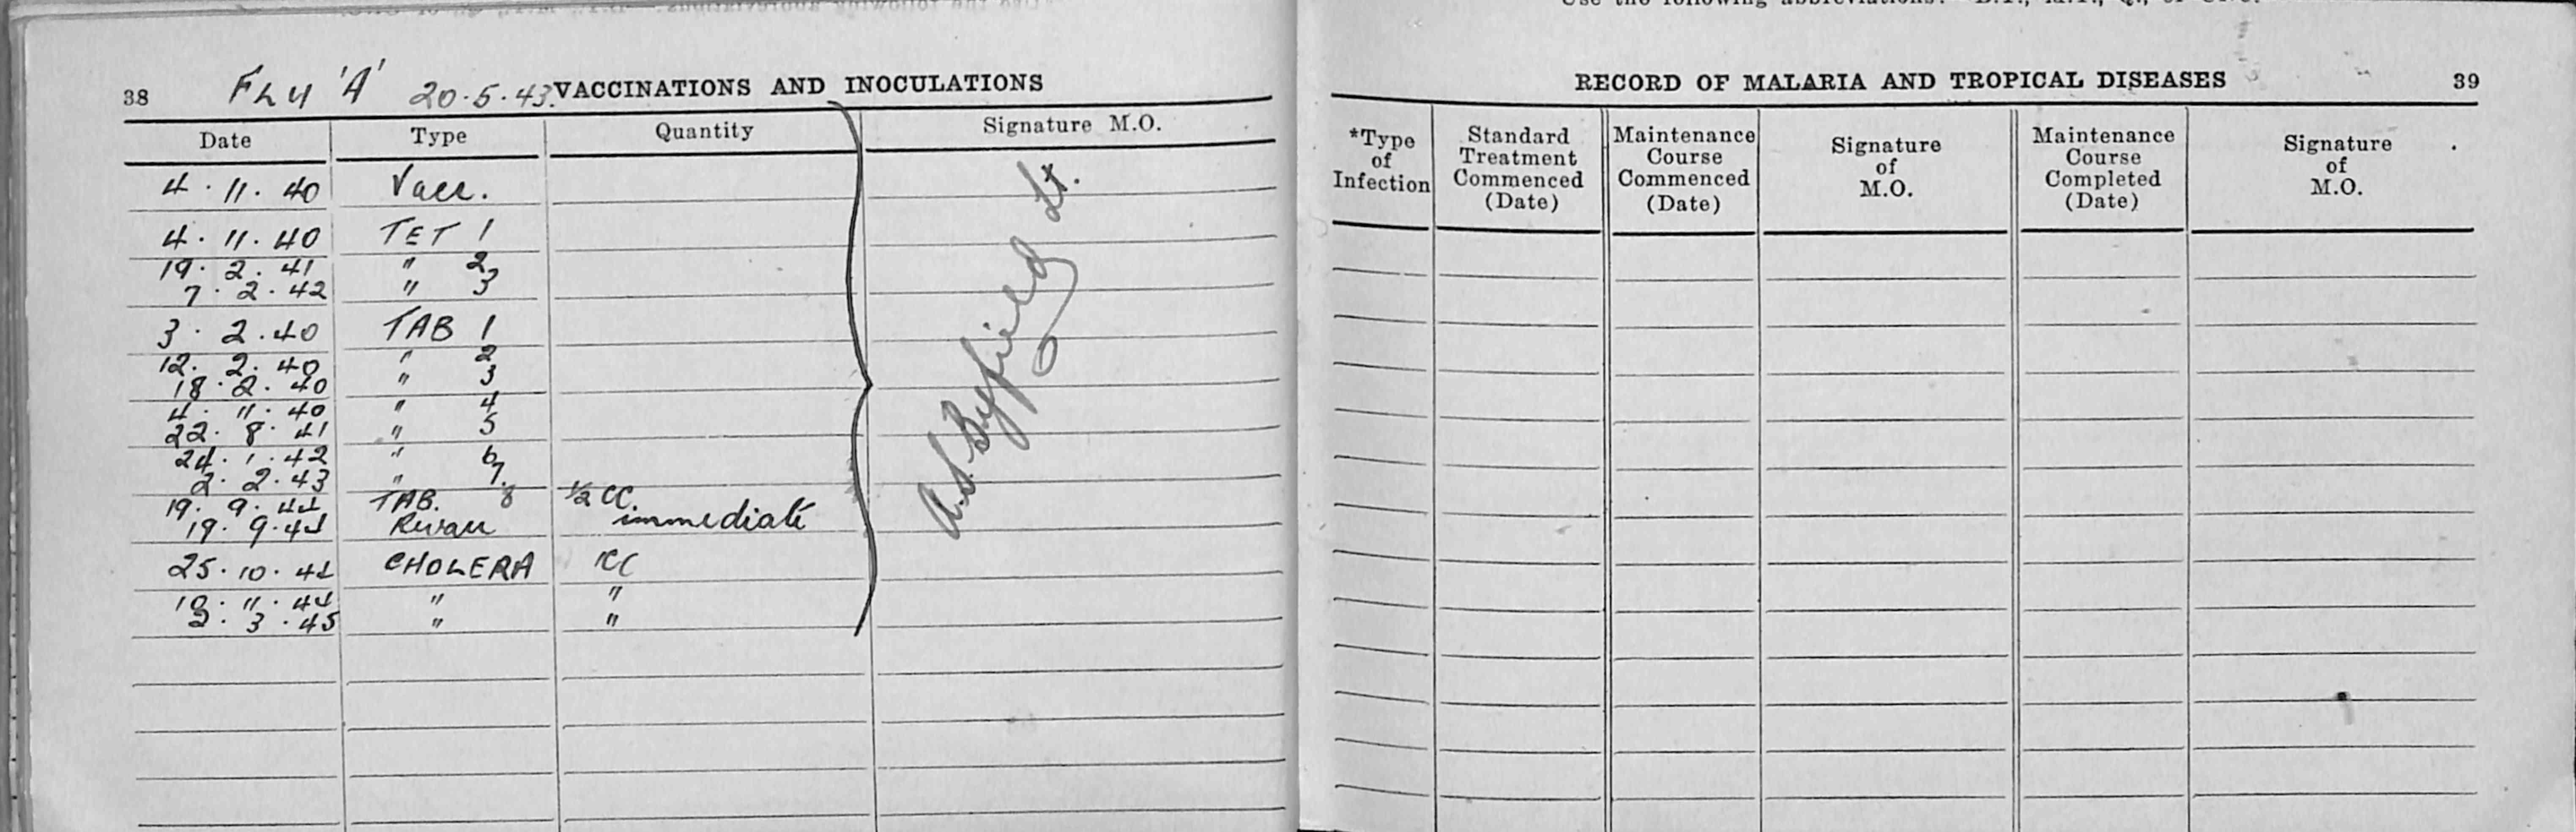 38 FLU 'A' 20.5.43. VACCINATIONS AND INOCULATIONS
Date Type Quantity Signature M.O.
4.11.40 Vacc.
4.11.40 TET 1
19.2.41 " 2
7.2.42 " 3
3.2.40 TAB 1
12.2.40 " 2
18.2.40 " 3
4.11.40 " 4
22.8.41 " 5
24.1.42 " 6
2.2.43 " 7.
19.9.44 TAB. 8 ½ CC.
19.9.44 Revacc immediate
25.10.44 CHOLERA 1CC
.11.44 " "
3.3.45 " "
A.S. Byfield Lt.
RECORD OF MALARIA AND TROPICAL DISEASES 39
*Type of Infection
Standard Treatment Commenced (Date)
Maintenance Course Commenced (Date)
Signature of M.O.
Maintenance Course Completed (Date)
Signature of M.O.